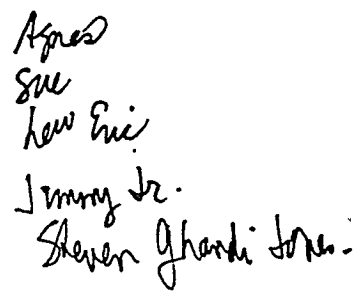 Agnes
Sue
Lew Eric
Jimmy Jr.
Steven Ghandi Jones.